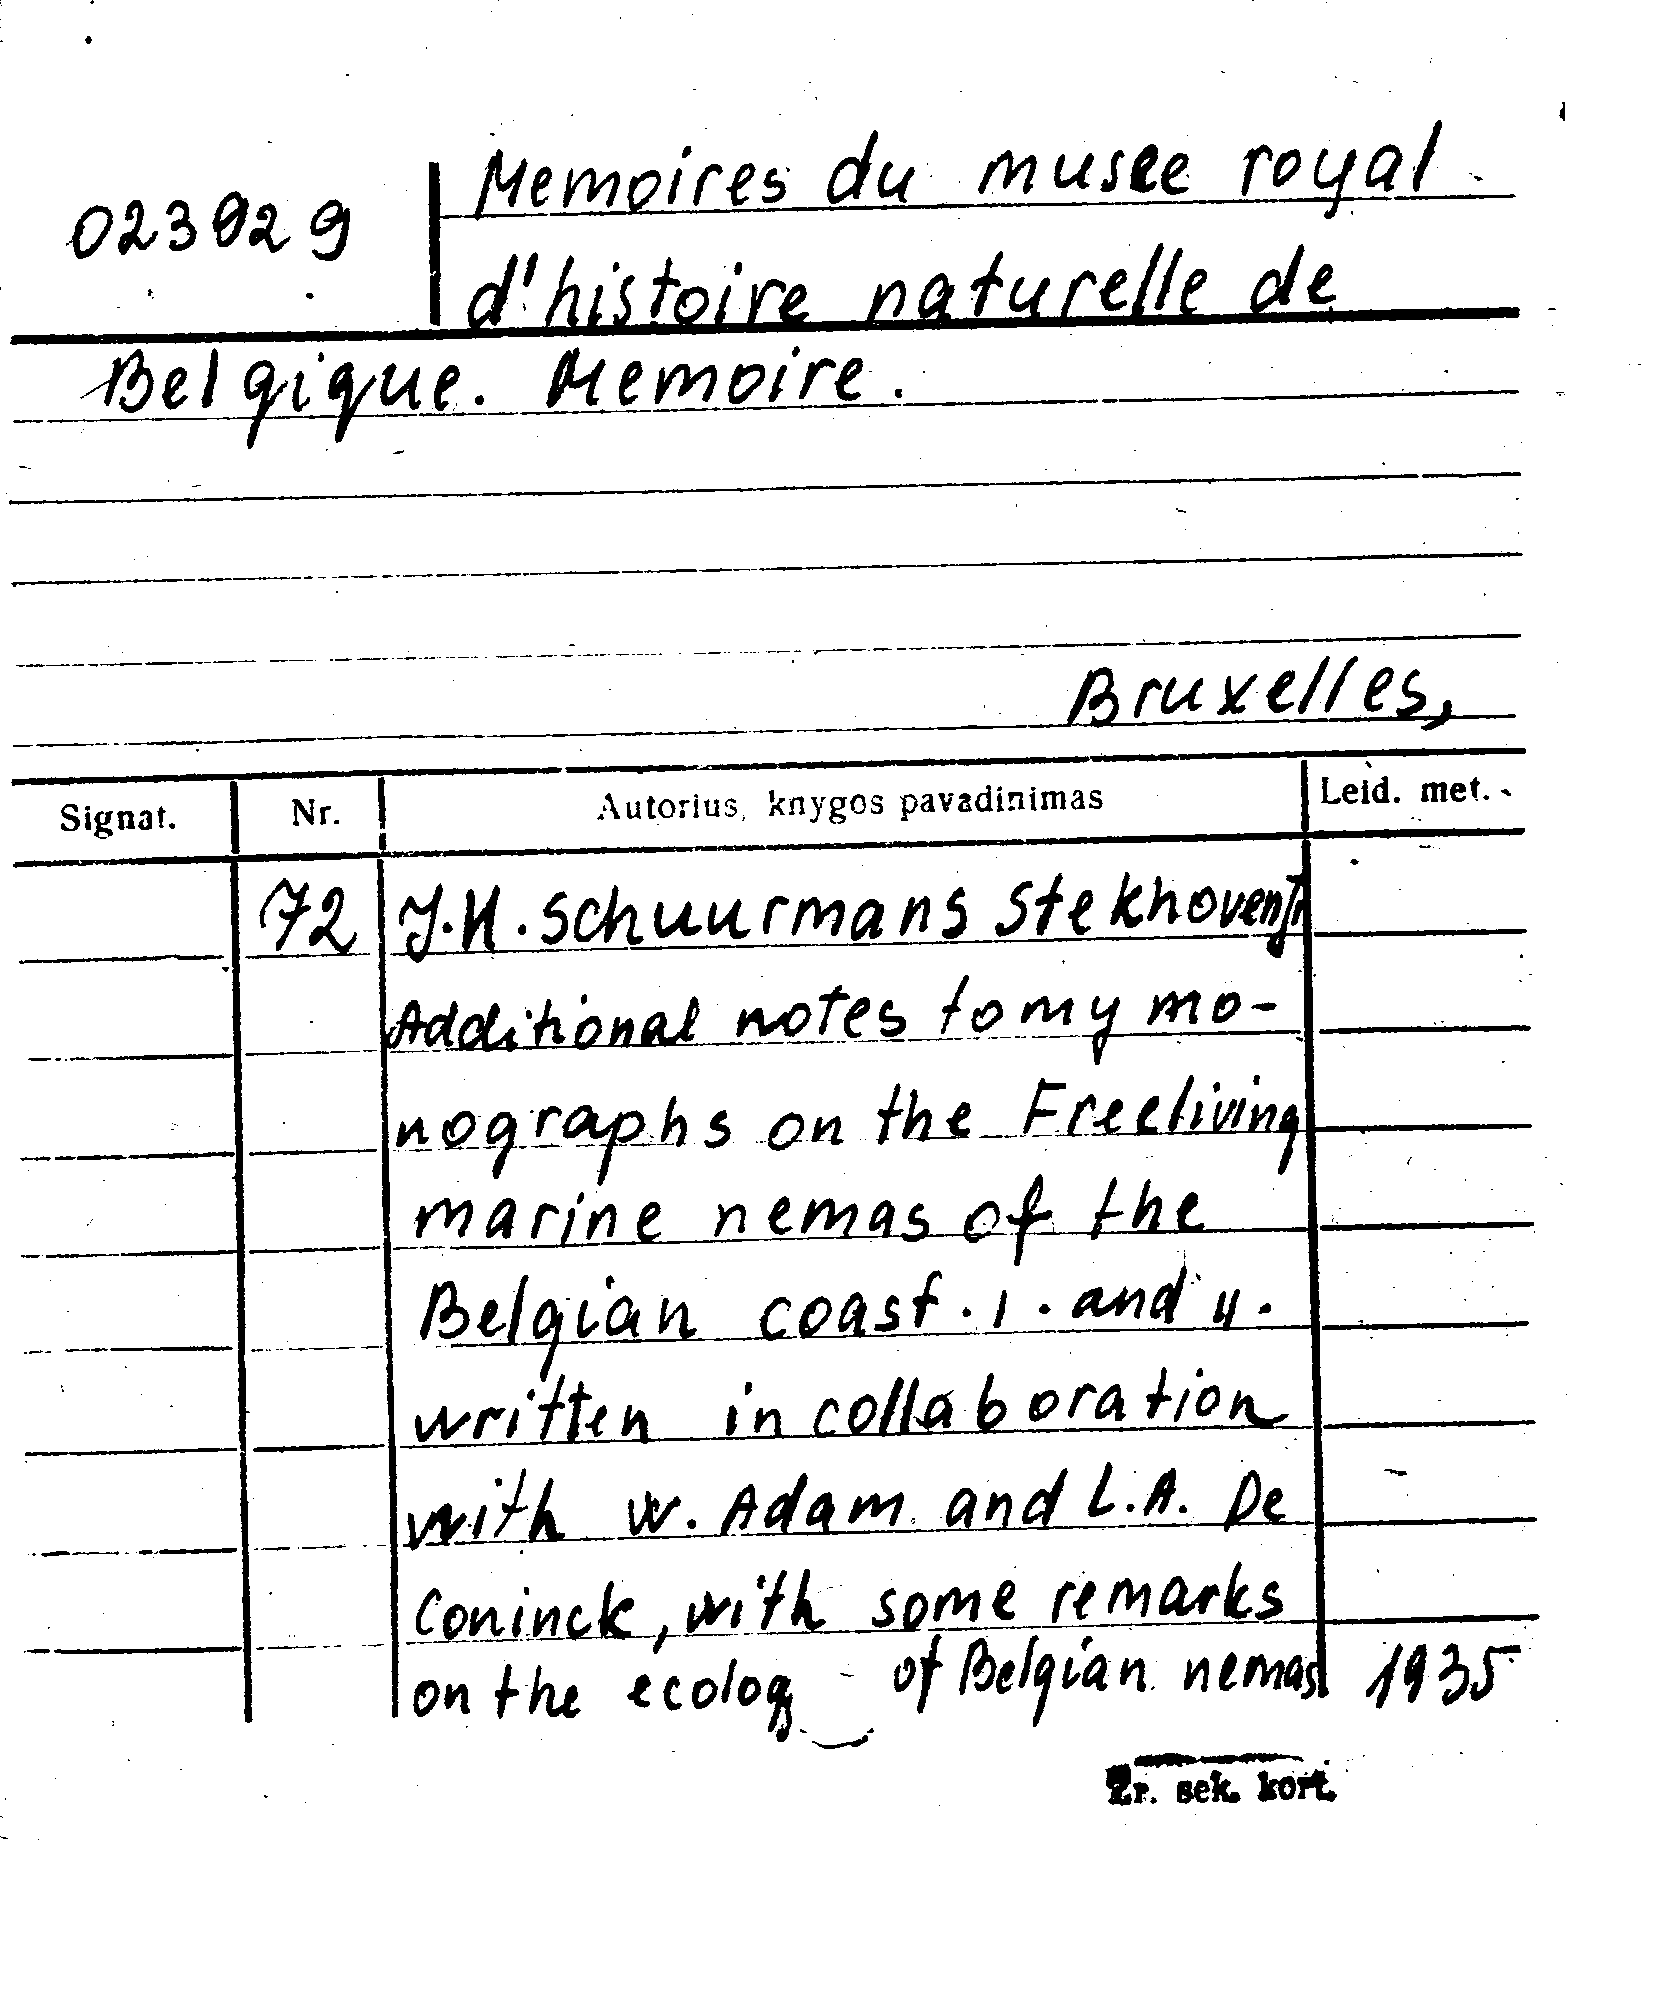 023929
Memoires du musee royal
d'histoire naturelle de
Belgique. Memoire.
Bruxelles,
Signat. Nr. Autorius, knygos pavadinimas Leid. met.
72 J.H. Schuurmans Stekhoven Jr
Additional notes to my mo-
nographs on the Freeliving
marine nemas of the
Belgian coast. I. and II.
written in collaboration
with W. Adam and L.A. De
Coninck, with some remarks
on the ecology of Belgian nemas 1935
Žr. sek. kort.